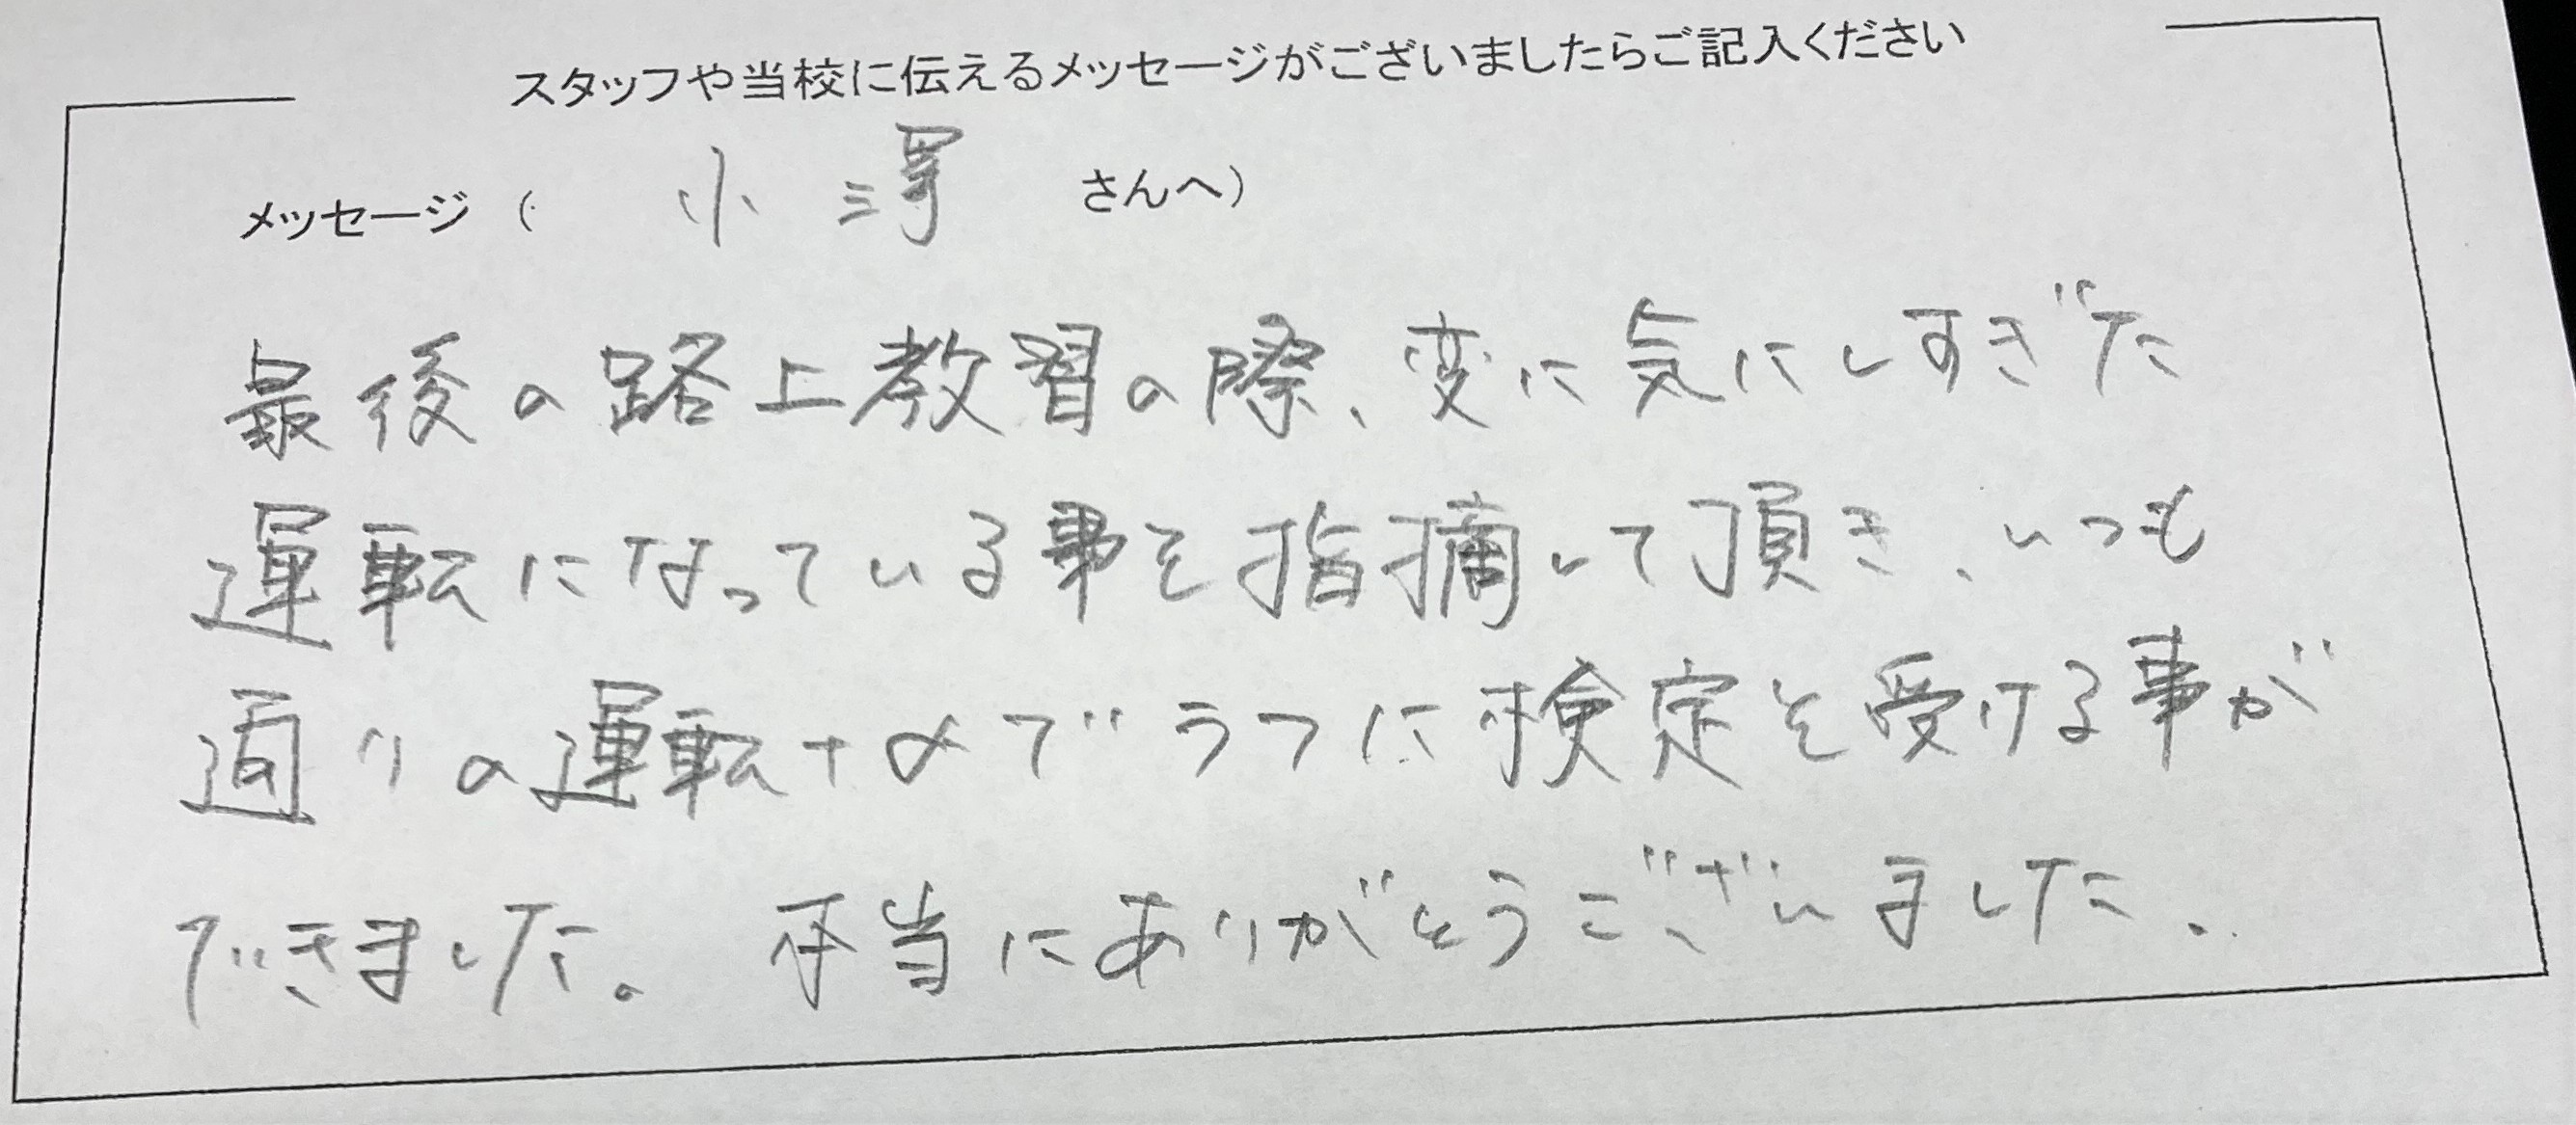 スタッフや当校に伝えるメッセージがございましたらご記入ください
メッセージ（ 小澤 さんへ）
最後の路上教習の際、変に気にしすぎた
運転になっている事を指摘して頂き、いつも
通りの運転+αでラフに検定を受ける事が
できました。本当にありがとうございました。